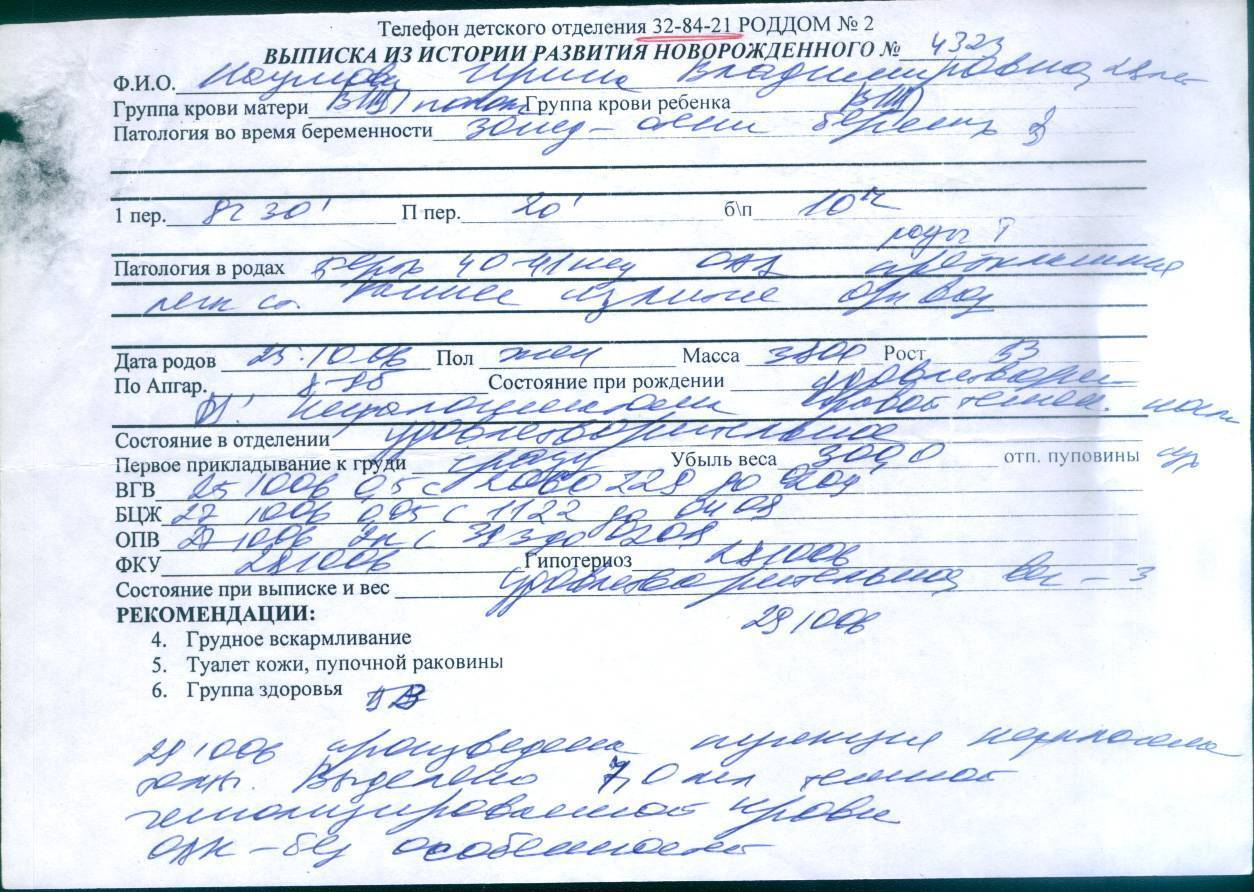 Телефон детского отделения 32-84-21 РОДДОМ № 2
ВЫПИСКА ИЗ ИСТОРИИ РАЗВИТИЯ НОВОРОЖДЕННОГО № 4323
Ф.И.О. Ирина Владимировна 28 лет
Группа крови матери В(III) Группа крови ребенка В(III)
Патология во время беременности
1 пер. 8ч 30' П пер. 20' б\п 10ч
роды I
Патология в родах 40-41 нед
легк ст. излитие вод
Дата родов 25.10.06 Пол жен Масса 3800 Рост 53
По Апгар. 8-9б Состояние при рождении удовлетворит-
правой темен. кости
Состояние в отделении удовлетворительное
Первое прикладывание к груди сразу Убыль веса 300,0 отп. пуповины
ВГВ 25 10 06 0,5 с
БЦЖ 27 10 06 0,05 с 1122 до 04 08
ОПВ 27 10 06 2к с 393 до 0208
ФКУ 28 10 06 Гипотериоз 28 10 06
Состояние при выписке и вес удовлетворительное вес – 3
РЕКОМЕНДАЦИИ:
29 10 06
4. Грудное вскармливание
5. Туалет кожи, пупочной раковины
6. Группа здоровья
29 10 06 произведена пункция кефалогема
томы. Выделено 7,0 мл темной
гемолизированной крови
ОАК – без особенностей